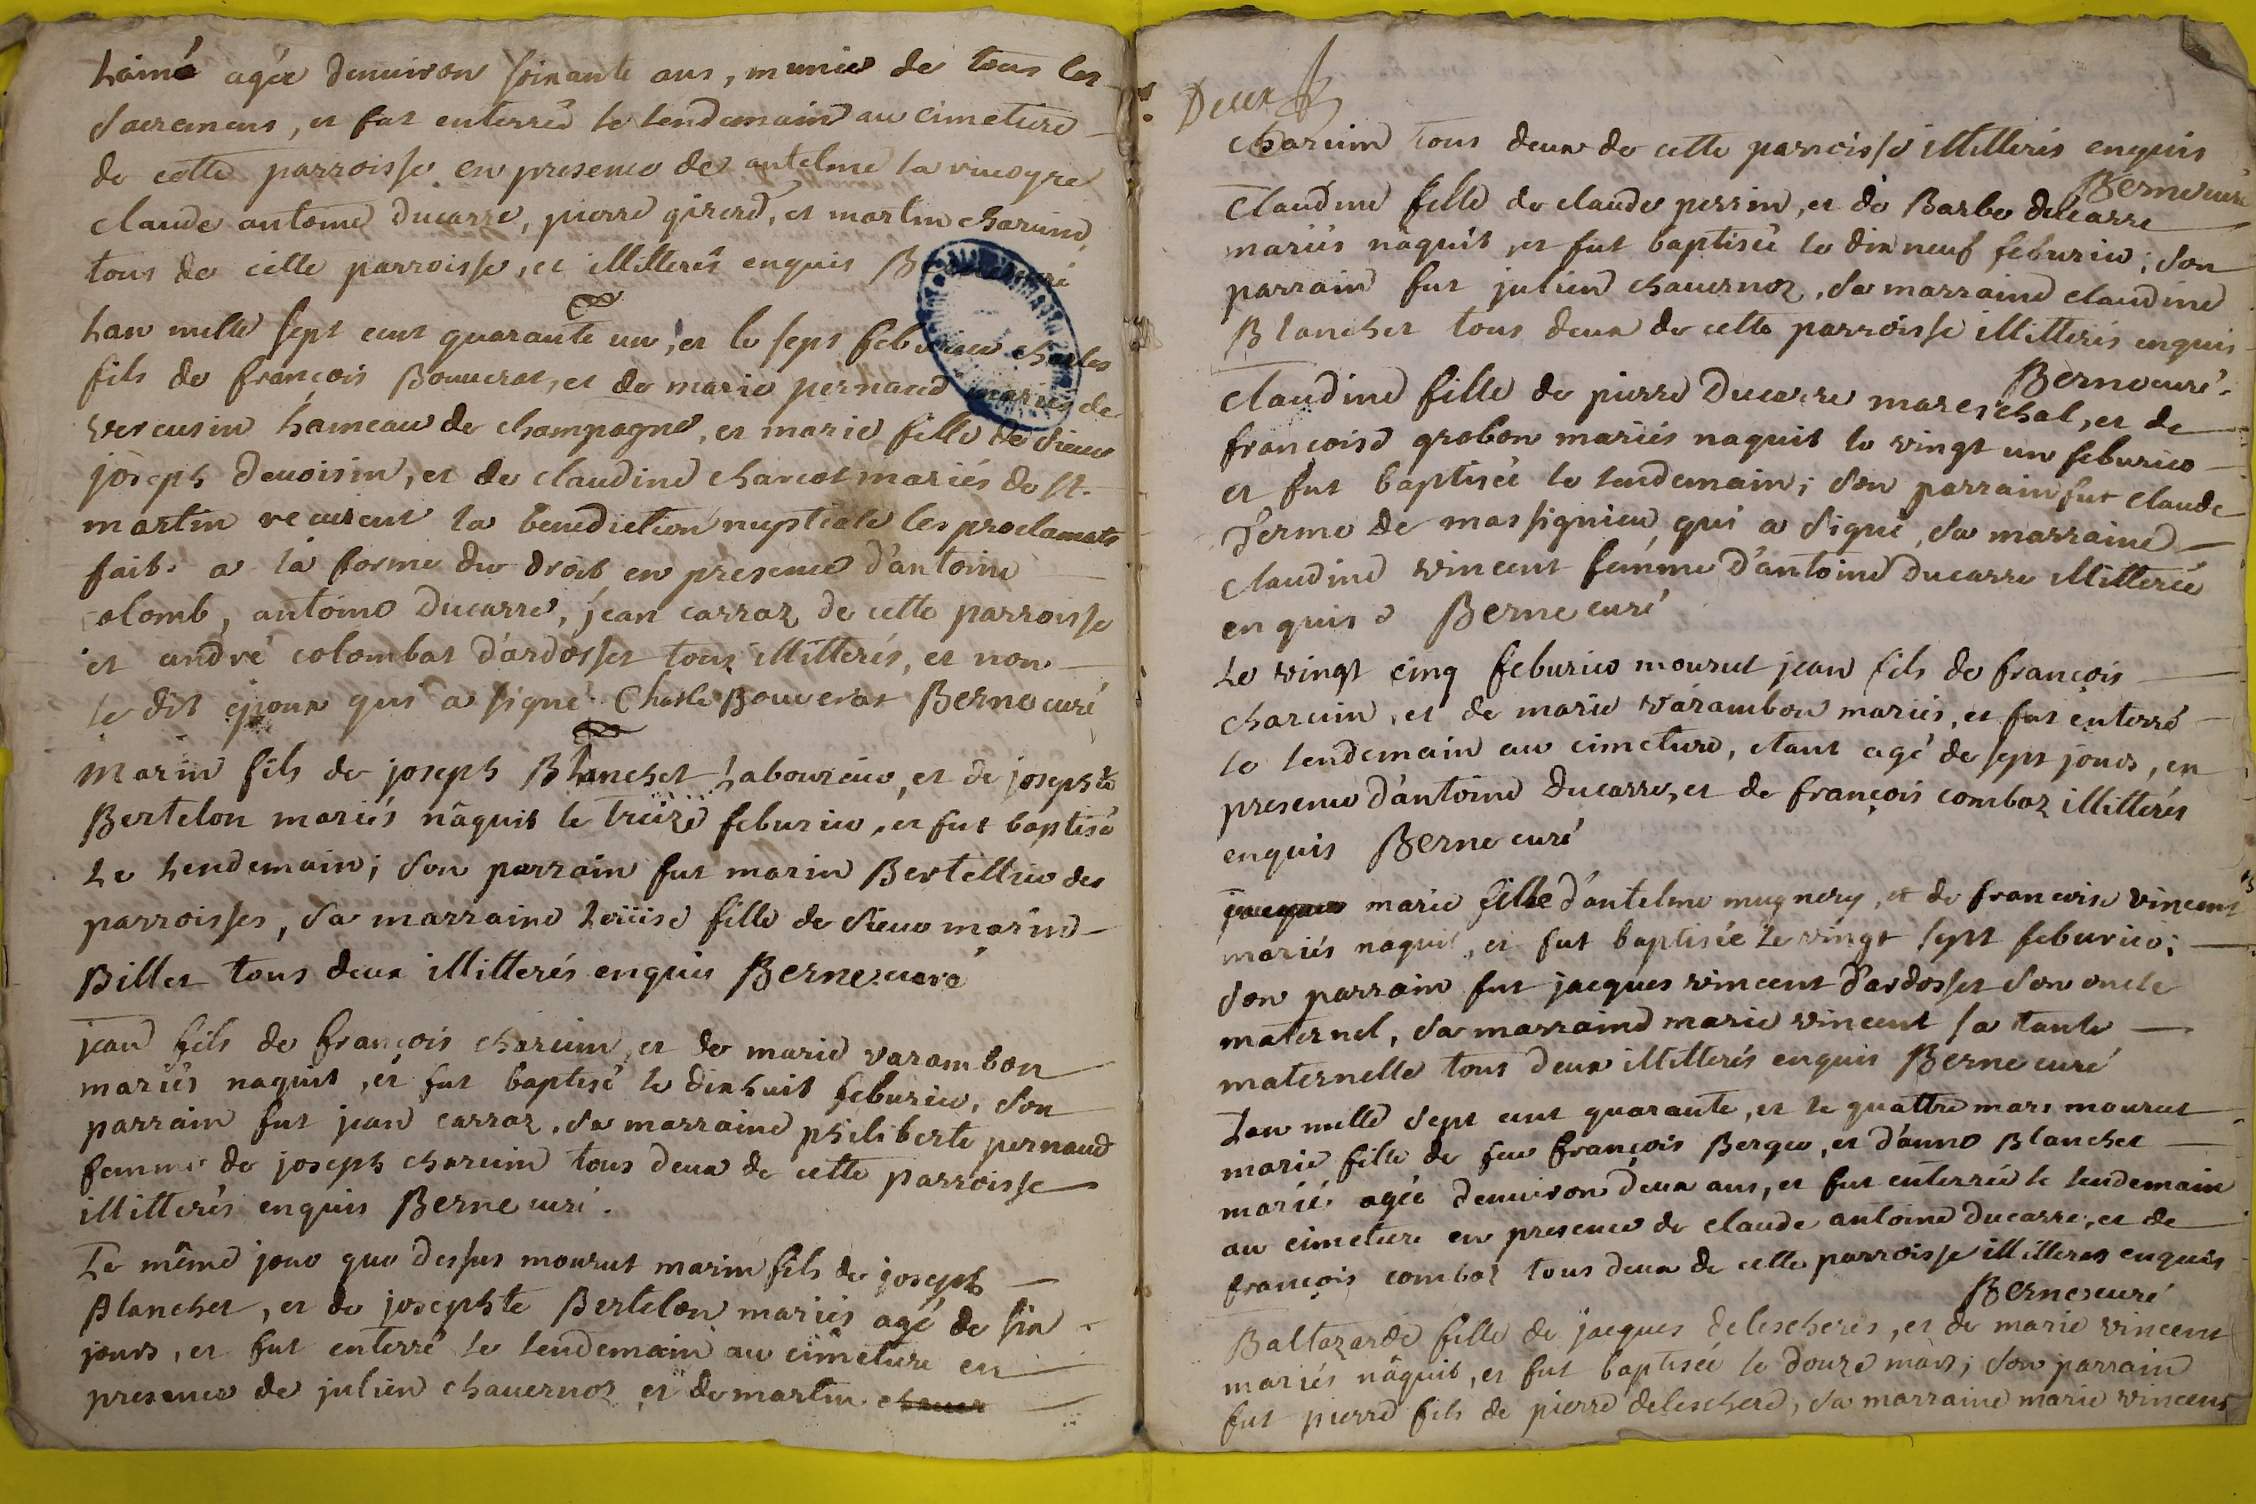 hainé agée denuiron soixante ans, munie de tous les
Sacremens, et fut enterrée le lendemain au cimetiere
de cette parroisse en presence de antelme la viuogre
claude antoine Ducarre, pierre girerd, et martin charuin,
tous de cette parroisse, et illitterés enquis Berne curé
Lan mille sept cent quarante un, et le sept feburier charles
fils de françois Bouuerat, et de marie pernaud mariés de
vercusin hameau de champagne, et marie fille de Sieur
joseph deuoisin, et de claudine charcot mariés de st.
martin recurent la benediction nuptiale les proclamats
faits a la forme du droit en presence d'antoine
colomb, antoine Ducarre, jean carraz de cette parroisse
et andré colombat d'ardosset tous illitterés, et non
le dit epoux qui a signé Charle Bouverat Berne curé
Marin fils de joseph Blanchet Laboureur, et de josephte
Bertelon mariés nâquit le treize feburier, et fut baptisé
Le Lendemain; Son parrain fut marin Bertellier des
parroisses, Sa marraine Loüise fille de Sieur marin
Billet tous deux illitterés enquis Berne curé
jean fils de françois charuin, et de marie varambon
mariés naquit, et fut baptisé le dixhuit feburier, Son
parrain fut jean carraz, Sa marraine philiberte pernaud
femme de joseph charuin tous deux de cette parroisse
illitterés enquis Berne curé.
Le même jour que dessus mourut marin fils de joseph
Blanchet, et de josephte Bertelon mariés agé de six
jours, et fut enterré le lendemain au cimetiere en
presence de julien chauernoz et de martin
Deux
charuin tous deux de cette parroisse illitterés enquis
Berne curé
Claudine fille de claude perrin, et de Barbe ducarre
mariés nâquit, et fut baptisée le dixneuf feburier; Son
parrain fut julien chauernoz, Sa marraine claudine
Blanchet tous deux de cette parroisse illitterés enquis
Berne curé.
Claudine fille de pierre Ducarre mareschal, et de
françoise grobon mariés naquit le vingt un feburier
et fut baptisée le lendemain; Son parrain fut claude
Ferme de massignieu, qui a signé, Sa marraine
claudine vincent femme d'antoine Ducarre illitterée
enquise Berne curé
Le vingt cinq feburier mourut jean fils de françois
charuin, et de marie varambon mariés, et fut enterré
le lendemain au cimetiere, etant agé de sept jours, en
presence d'antoine Ducarre, et de françois comboz illitterés
enquis Berne curé
jacques marie fille d'antelme mugnery, et de francoise vincent
mariés naquit, et fut baptisée le vingt sept feburier;
Son parrain fut jacques vincent d'ardosset Son oncle
maternel, Sa marraine marie vincent sa tante
maternelle tous deux illitterés enquis Berne curé
Lan mille Sept cent quarante, et le quattre mars mourut
marie fille de feu françois Berger, et d'anne Blanchet
mariés agée denuiron deux ans, et fut enterrée le lendemain
au cimetiere en presence de claude antoine Ducarre, et de
françois comboz tous deux de cette parroisse illitteres enquis
Berne curé
Baltazarde fille de jacques delescheres, et de marie vincent
mariés nâquit, et fut baptisée le douze mars; Son parrain
fut pierre fils de pierre delescherè, Sa marraine marie vincent